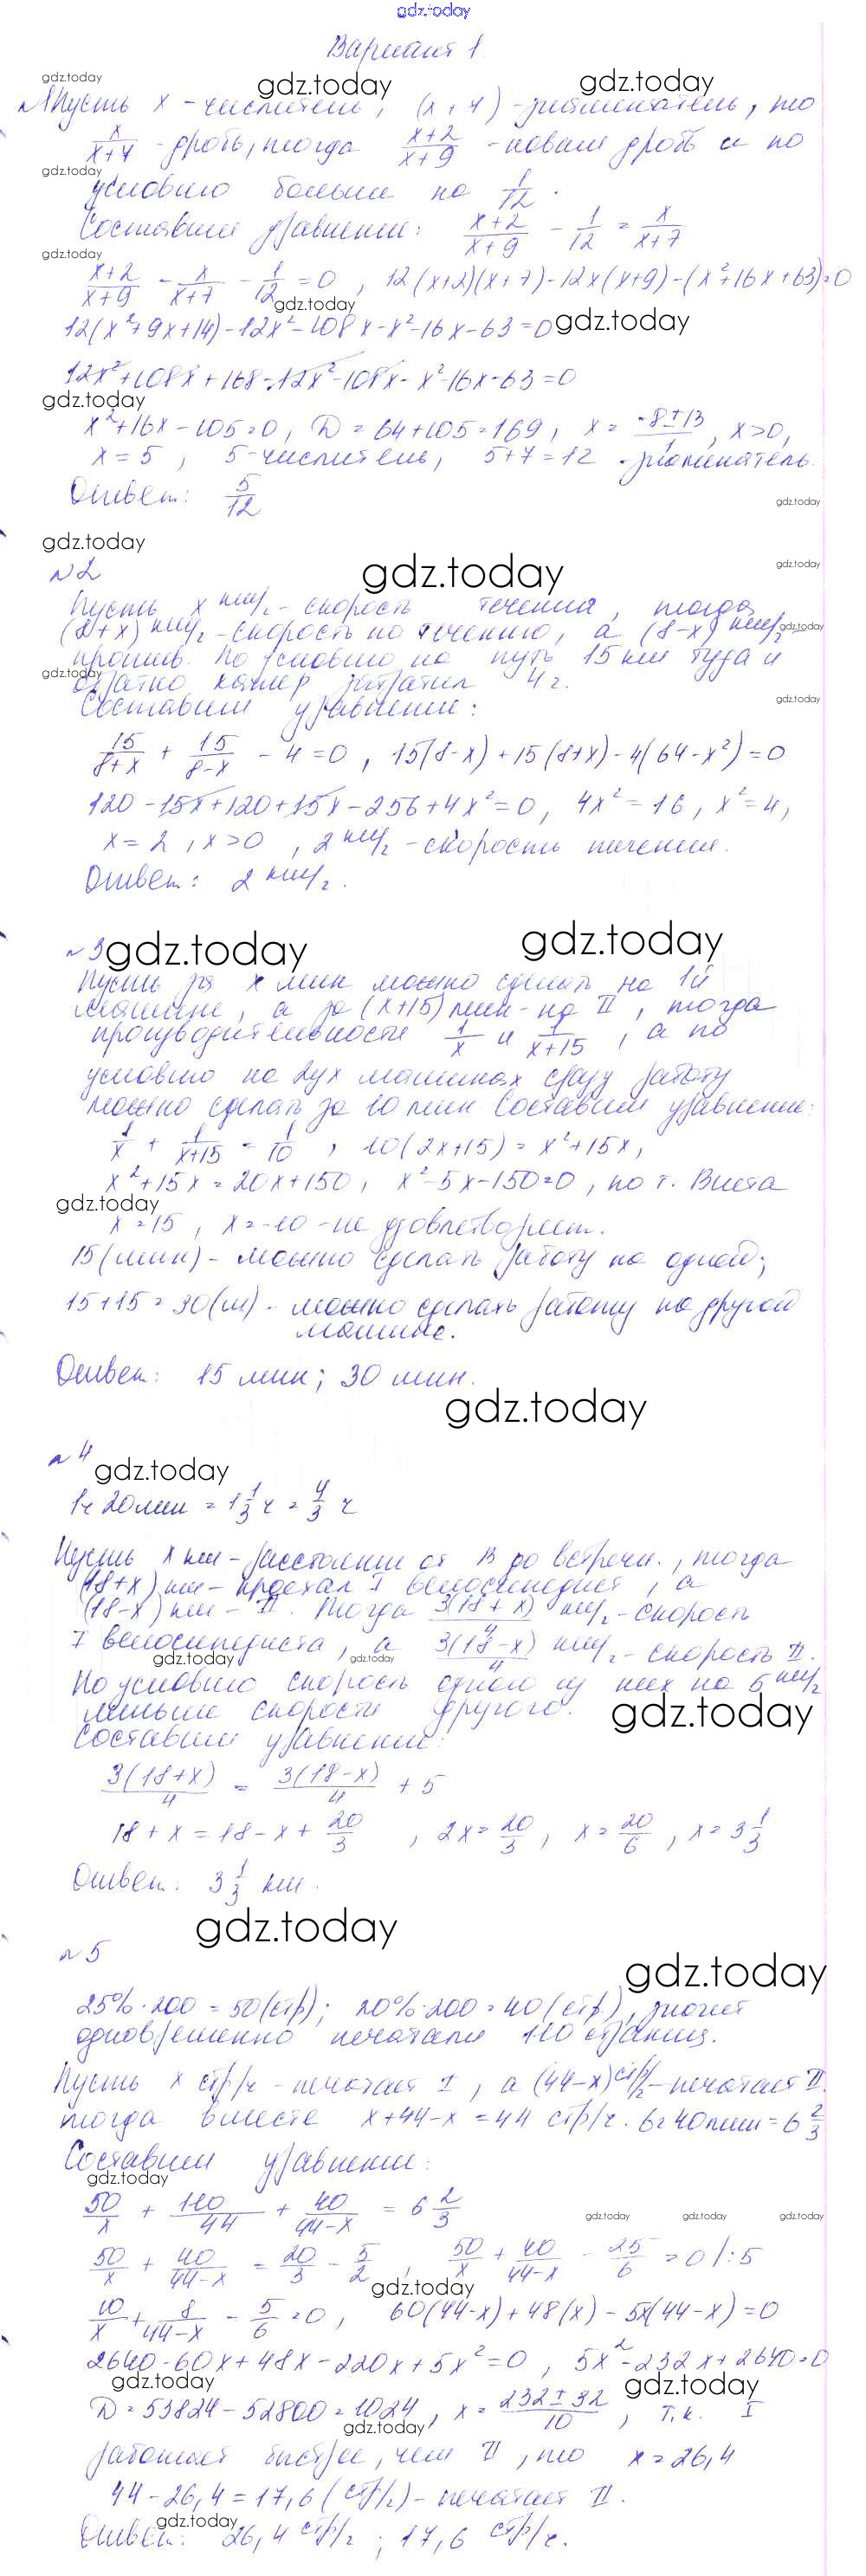 gdz.today
Вариант 1
№1 Пусть x - числитель, (x+7) - знаменатель, то
x/(x+7) - дробь, тогда (x+2)/(x+9) - новая дробь и по
условию больше на 1/12.
Составим уравнение: (x+2)/(x+9) - 1/12 = x/(x+7)
(x+2)/(x+9) - x/(x+7) - 1/12 = 0, 12(x+2)(x+7)-12x(x+9)-(x²+16x+63)=0
12(x²+9x+14)-12x²-108x-x²-16x-63=0
12x²+108x+168-12x²-108x-x²-16x-63=0
x²+16x-105=0, D=64+105=169, x=(-8±13)/1, x>0,
x=5, 5-числитель, 5+7=12 - знаменатель.
Ответ: 5/12
№2
Пусть x км/ч - скорость течения, тогда
(8+x) км/ч - скорость по течению, а (8-x) км/ч -
против. По условию на путь 15 км туда и
обратно катер затратил 4 ч.
Составим уравнение:
15/(8+x) + 15/(8-x) - 4 = 0, 15(8-x)+15(8+x)-4(64-x²)=0
120-15x+120+15x-256+4x²=0, 4x²=16, x²=4,
x=2, x>0, 2 км/ч - скорость течения.
Ответ: 2 км/ч.
№3
Пусть за x мин можно сделать на 1й
машине, а за (x+15) мин - на II, тогда
производительности 1/x и 1/(x+15), а по
условию на двух машинах сразу работу
можно сделать за 10 мин. Составим уравнение:
1/x + 1/(x+15) = 1/10, 10(2x+15)=x²+15x,
x²+15x=20x+150, x²-5x-150=0, по т. Виета
x=15, x=-10 - не удовлетворяет.
15 (мин) - можно сделать работу на одной;
15+15=30 (м) - можно сделать работу на другой
машине.
Ответ: 15 мин; 30 мин.
№4
1ч 20мин = 1 1/3 ч = 4/3 ч
Пусть x км - расстояние от В до встречи, тогда
(18+x) км - проехал I велосипедист, а
(18-x) км - II. Тогда 3(18+x)/4 км/ч - скорость
I велосипедиста, а 3(18-x)/4 км/ч - скорость II.
По условию скорость одного из них на 5 км/ч
меньше скорости другого.
Составим уравнение:
3(18+x)/4 = 3(18-x)/4 + 5
18+x=18-x+20/3, 2x=20/3, x=20/6, x=3 1/3
Ответ: 3 1/3 км.
№5
25%·200=50(стр); 20%·200=40(стр), значит
одновременно печатали 110 страниц.
Пусть x стр/ч - печатает I, а (44-x) стр/ч - печатает II.
тогда вместе x+44-x=44 стр/ч. 6ч 40мин=6 2/3
Составим уравнение:
50/x + 110/44 + 40/(44-x) = 6 2/3
50/x + 40/(44-x) = 20/3 - 5/2, 50/x + 40/(44-x) - 25/6 = 0 /:5
10/x + 8/(44-x) - 5/6 = 0, 60(44-x)+48(x)-5x(44-x)=0
2640-60x+48x-220x+5x²=0, 5x²-232x+2640=0
D=53824-52800=1024, x=(232±32)/10, т.к. I
работает быстрее, чем II, то x=26,4
44-26,4=17,6 (стр/ч) - печатает II.
Ответ: 26,4 стр/ч; 17,6 стр/ч.